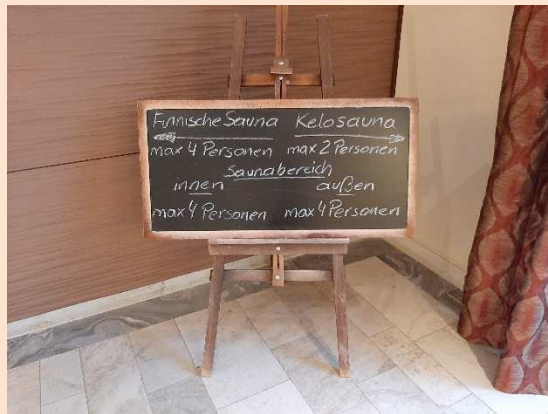 Finnische Sauna Kelosauna
max 4 Personen max 2 Personen
Saunabereich
innen außen
max 4 Personen max 4 Personen